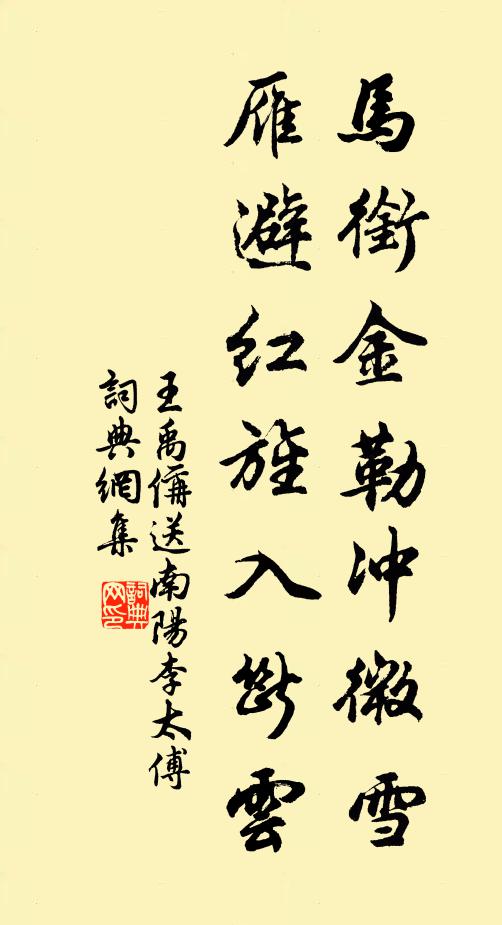 馬銜金勒沖微雪
雁避紅旌入斷雲
王禹偁送南陽李太傅
詞典網集
詞典网印